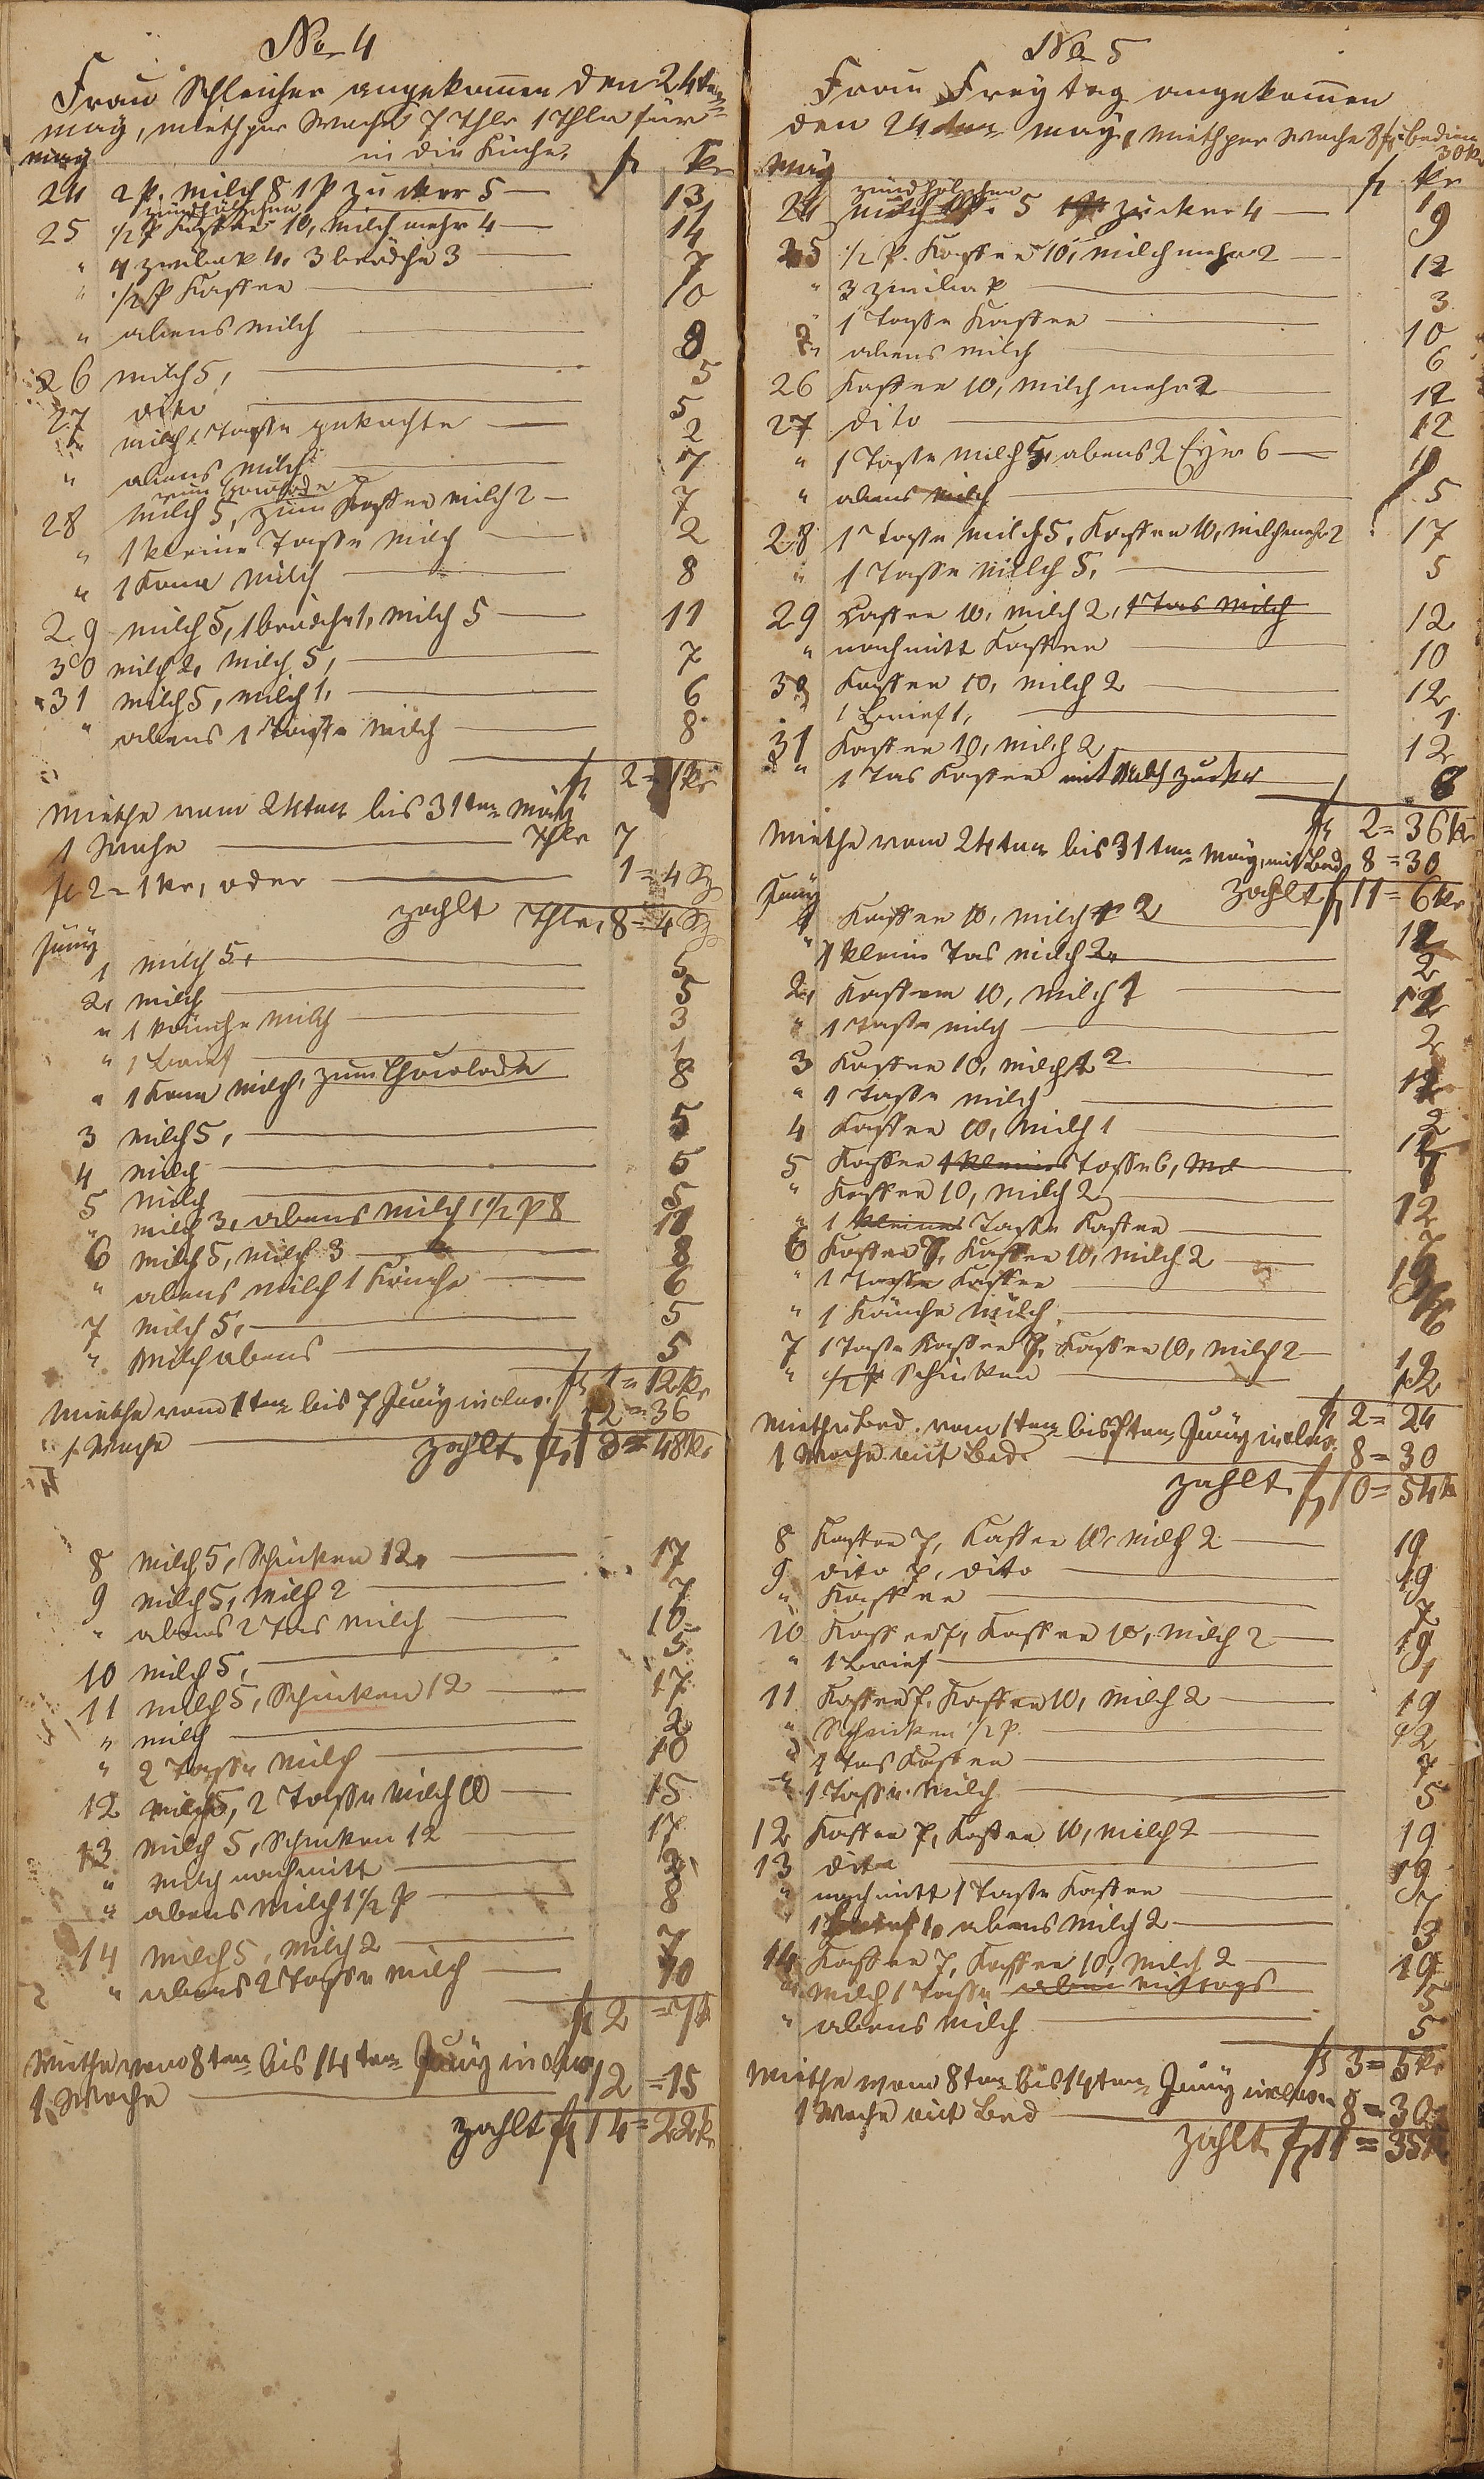 No 4
Frau Schleicher angekommen den 24ten
may, mieth per Woche 7 Thlr 1 Thlr für
in die Küche,
may fl kr
24 2 P. Milch 8 1 P zucker 5 — 13
zündhölzchen
25 1/2 P Kaffee 10, Milch mehr 4 — 14
" 4 zwiback 4, 3 brödche 3 — 7
" 1/2 P Kaffee — 10
" abens milch — 8
26 milch 5, — 5
27 dito — 5
" milch 1 Tasse gekochte — 2
" abens milch — 7
zum Chocolade
28 Milch 5, zum Kaffee milch 2 — 7
" 1 kleine Tasse Milch — 2
" 1 Kane Milch — 8
29 milch 5, 1 brödche 1, milch 5 — 11
30 milch 2, milch 5, — 7
31 milch 5, milch 1, — 6
" abens 1 Tasse milch — 8
fl 2 = 1 kr
Miethe vom 24ten bis 31ten May
1 Woche — Thlr 7
fl 2 = 1 kr, oder — 1 = 4 Sg
zahlt Thlr, 8 = 4 Sg
Juny
1 milch 5, — 5
2, milch — 5
" 1 känche Milch — 3
" 1 Brief — 1
" 1 Kane milch, zum Chocolade 8
3 milch 5, — 5
4 milch — 5
5 milch — 5
" milch 3, abens milch 1 1/2 P 8 11
6 milch 5, milch 3 — 8
" abens milch 1 Känche — 6
7 milch 5, — 5
" Milch abens — 5
fl 1 = 12 kr
Miethe vom 1ten bis 7 Juny inclus. 12 = 36
1 Woche — zahlt fl 13 = 48 kr
8 milch 5, Schinken 12, — 17
9 milch 5, milch 2 — 7
" abens 2 Tas milch — 10
10 milch 5, — 5
11 milch 5, Schinken 12 — 17
" milch — 2
" 2 Tasse milch — 10
12 milch 5, 2 Tasse milch 10 — 15
13 milch 5, Schinken 12 — 17
" milch nachmitt — 3
" abens milch 1 1/2 P — 8
14 milch 5, milch 2 — 7
" abens 2 Tasse milch — 10
fl 2 = 7 k
Miethe vom 8ten bis 14ten Juny inclus
1 Woche — 12 = 15
zahlt fl 14 = 22 kr
No 5
Frau Freytag angekommen
den 24ten may, mieth per Woche 8 fl bedien
30 kr
May fl kr
zündhölzchen
24 Milch 5 zucker 4 — 9
25 1/2 P. Kaffee 10, milch mehr 2 — 12
" 3 zwiback — 3
" 1 Tasse Kaffee — 10
" abens milch — 6
26 Kaffee 10, milch mehr 2 — 12
27 dito — 12
" 1 Tasse milch 5, abens 2 Eyer 6 — 11
" abens milch — 5
28 1 Tasse milch 5, Kaffee 10, milch mehr 2 17
" 1 Tasse milch 5, — 5
29 Kaffee 10, milch 2, 1 Tas milch 12
" nachmitt Kaffee — 10
30 Kaffee 10, milch 2 — 12
" 1 Brief 1, — 1
31 Kaffee 10, milch 2 — 12
" 1 Tas Kaffee mit Milch zucker 8
fl 2 = 36 kr
Miethe vom 24ten bis 31ten May, mit Bed 8 = 30
zahlt fl 11 = 6 kr
Juny
1 Kaffee 10, milch 2 — 12
" 1 kleine Tas milch 2, — 2
2, Kaffee 10, milch 2 — 12
" 1 Tasse milch — 2
3 Kaffee 10, milch 2 — 12
" 1 Tasse milch — 2
4 Kaffee 10, milch 1
5 Kaffee 1 kleine Tasse 6, Mil
" Kaffee 10, milch 2 — 12
" 1 kleine Tasse Kaffee — 7
6 Kaffee 7, Kaffee 10, milch 2 — 19
" 1 Tasse Kaffee
" 1 Känche milch, — 6
7 1 Tasse Kaffee 7, Kaffee 10, milch 2 — 19
" 1/2 P Schinken — 12
fl 2 = 24
Miethe Bed. vom 1ten bis 7ten Juny inclus.
1 Woche mit Bed. — 8 = 30
zahlt fl 10 = 54 k
8 Kaffee 7, Kaffee 10 milch 2 — 19
9 dito 7, dito — 19
" Kaffee — 7
10 Kaffee 7, Kaffee 10, milch 2 — 19
" 1 Brief — 1
11 Kaffee 7, Kaffee 10, milch 2 — 19
" Schinken 1/2 P. — 12
" 1 Tas Kaffee — 7
" 1 Tasse milch — 5
12 Kaffee 7, Kaffee 10, milch 2 — 19
13 dito — 19
" nachmitt 1 Tasse Kaffee — 7
" 1 Brief 1, abens milch 2 — 3
14 Kaffee 7, Kaffee 10, milch 2 — 19
" milch 1 Tasse mittags — 5
" abens milch — 5
fl 3 = 5 kr
Miethe vom 8ten bis 14ten Juny inclus
1 Woche mit Bed — 8 = 30
zahlt fl 11 = 35 k